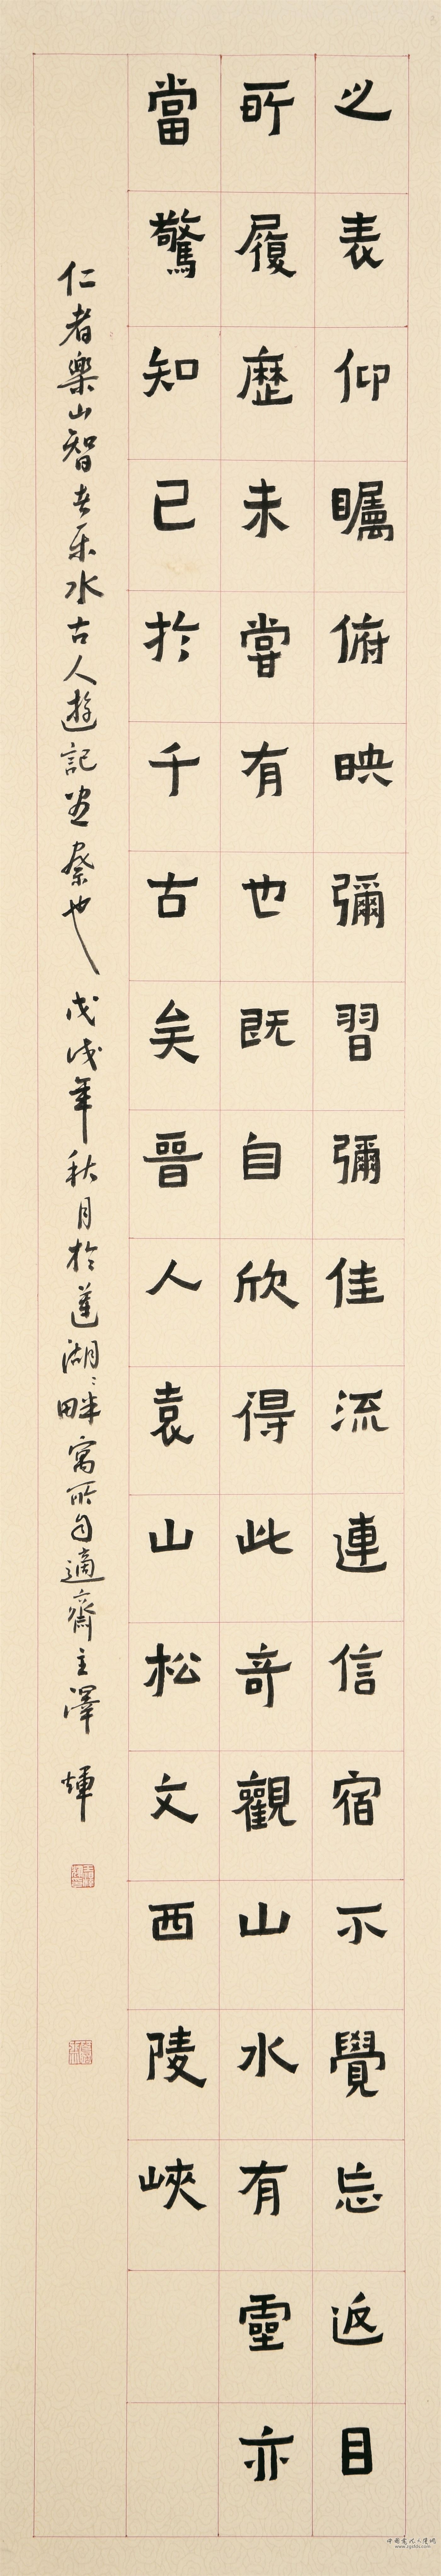 之表仰矚俯映彌習彌佳流連信宿不覺忘返目
所履歷未嘗有也既自欣得此奇觀山水有靈亦
當驚知己於千古矣晉人袁山松文西陵峽
仁者樂山智者乐水古人遊記盡祭也戊戌年秋月於蓮湖湖畔寓所自適齋主澤輝